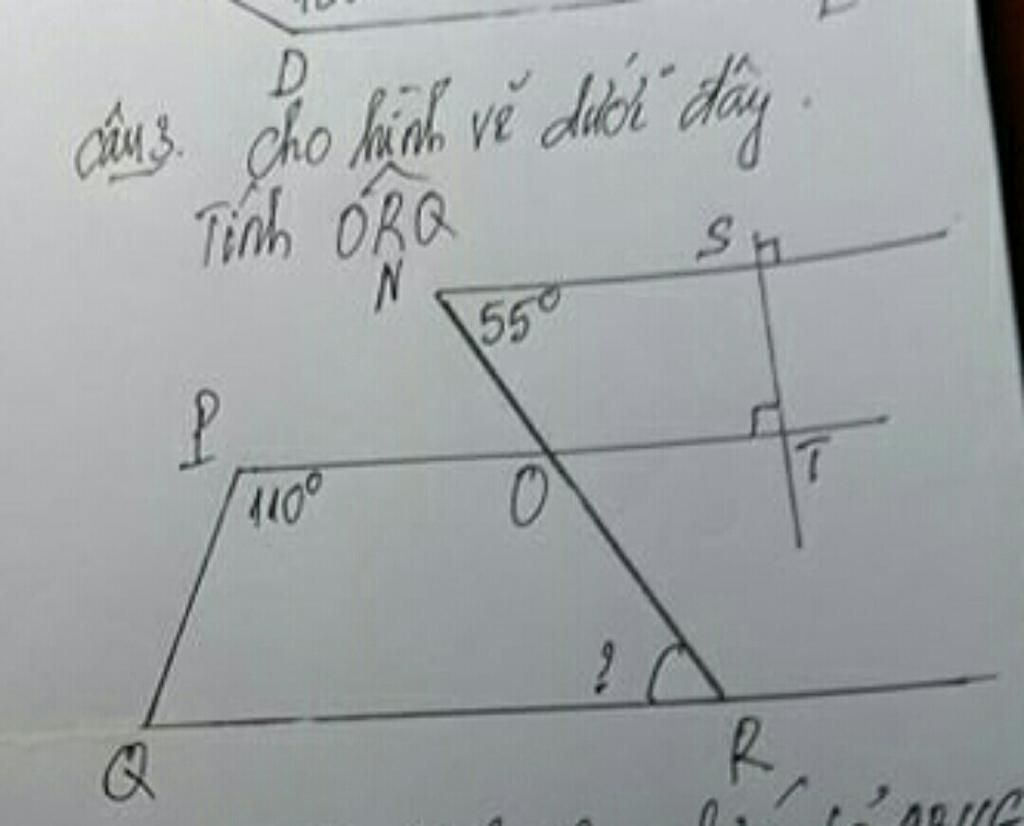 D
Câu 3. Cho hình vẽ dưới đây.
Tính ORQ
N
S
55°
P
110°
O
T
?
Q
R